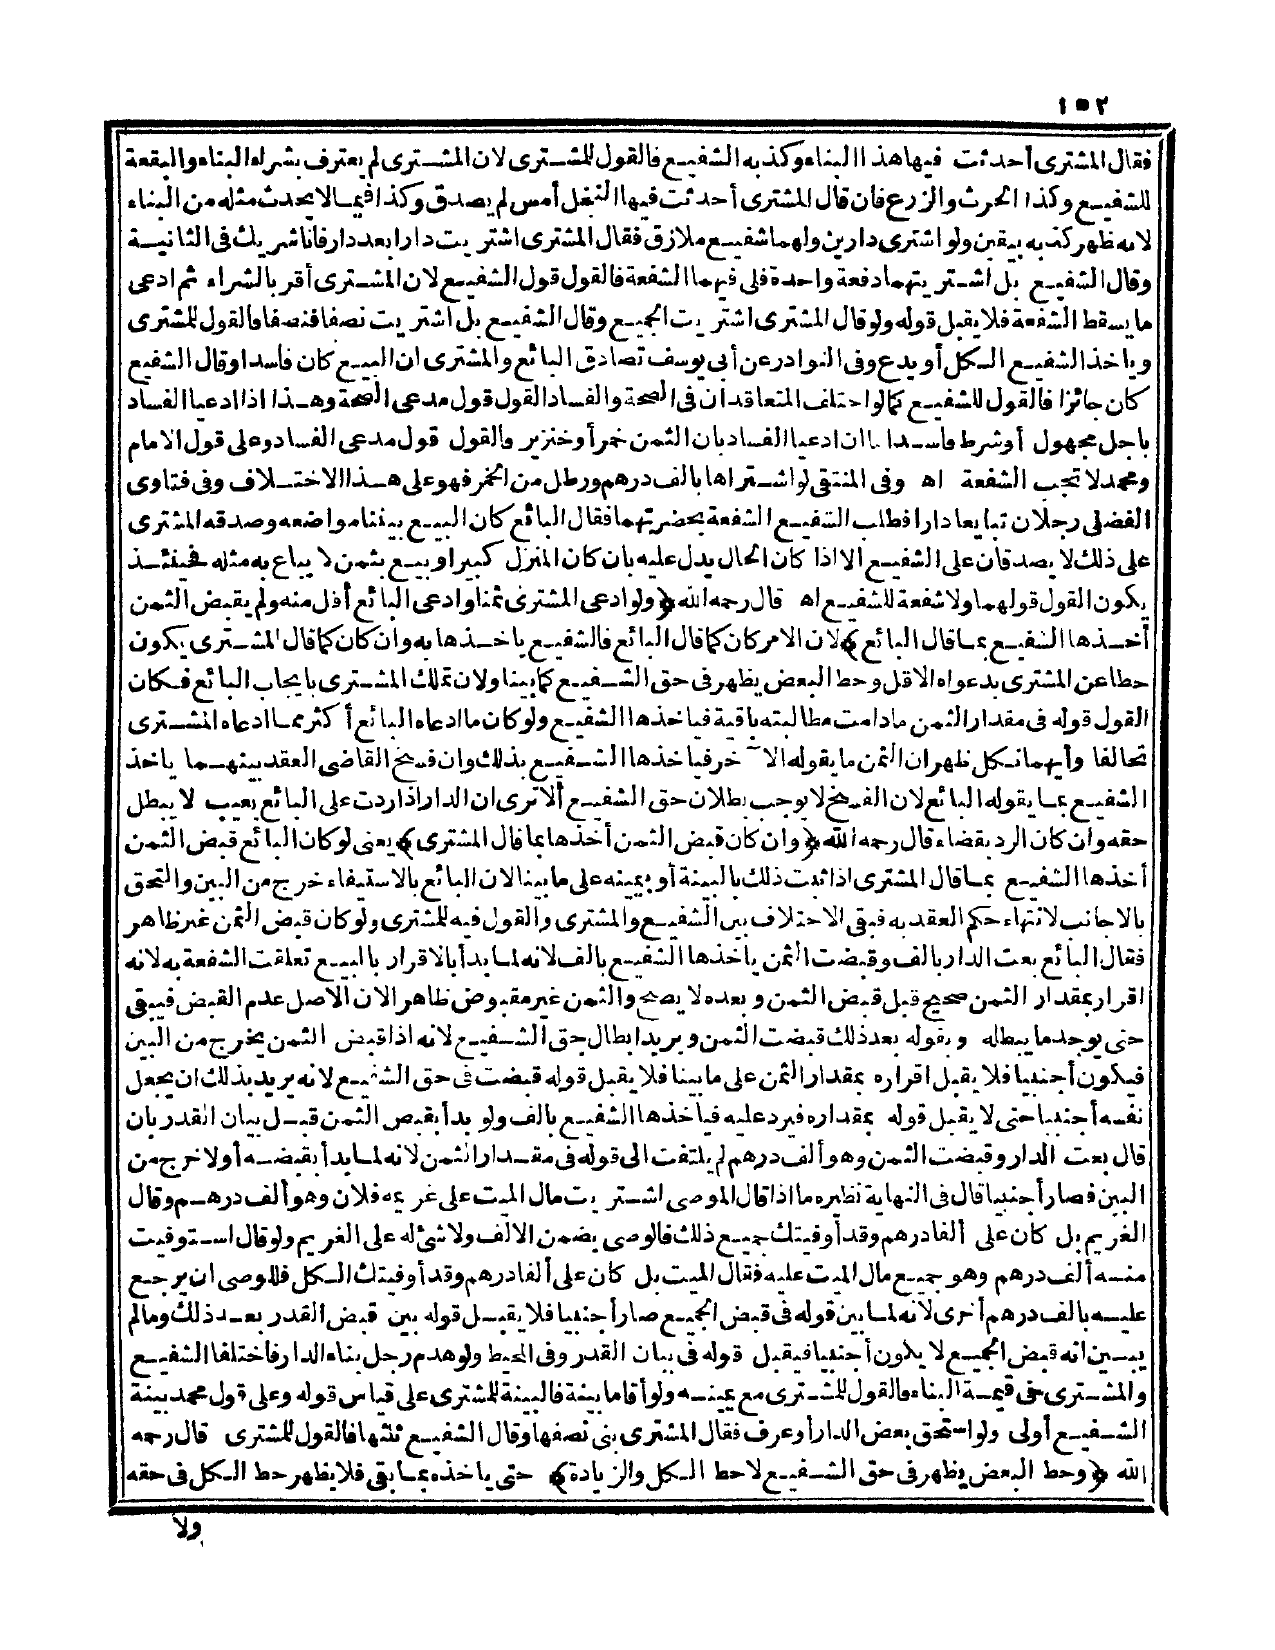 ١٥٢
فقال المشترى أحدثت فيها هذا البناء وكذبه الشفيع فالقول للمشترى لان المشترى لم يعترف بشراء البناء والبقعة
للشفيع وكذا الحرث والزرع فان قال المشترى أحدثت فيها النخل أمس لم يصدق وكذا فيما لا يحدث مثله من البناء
لانه ظهر كذبه بيقين ولو اشترى دارين ولهما شفيع ملازق فقال المشترى اشتريت دارا بعد دار فانا شريك فى الثانية
وقال الشفيع بل اشتريتهما دفعة واحدة فلى فيهما الشفعة فالقول قول الشفيع لان المشترى أقر بالشراء ثم ادعى
ما يسقط الشفعة فلا يقبل قوله ولو قال المشترى اشتريت الجميع وقال الشفيع بل اشتريت نصفا فنصفا فالقول للمشترى
وياخذ الشفيع الكل أو يدع وفى النوادر عن أبى يوسف تصادق البائع والمشترى ان البيع كان فاسدا وقال الشفيع
كان جائزا فالقول للشفيع كما لو اختلف المتعاقدان فى الصحة والفساد القول قول مدعى الصحة وهذا اذا ادعيا الفساد
باجل مجهول أو شرط فاسد اما ان ادعيا الفساد بان الثمن خمر أو خنزير فالقول قول مدعى الفساد وعلى قول الامام
ومحمد لا تجب الشفعة اه وفى المنتقى لو اشتراها بالف درهم ورطل من الخمر فهو على هذا الاختلاف وفى فتاوى
الفضلى رجلان تبايعا دارا فطلب الشفيع الشفعة بحضرتهما فقال البائع كان البيع بيننا مواضعه وصدقه المشترى
على ذلك لا يصدقان على الشفيع الا اذا كان الحال يدل عليه بان كان المنزل كبيرا وبيع بثمن لا يباع به مثله فحينئذ
يكون القول قولهما ولا شفعة للشفيع اه قال رحمه الله ﴿ولو ادعى المشترى ثمنا وادعى البائع أقل منه ولم يقبض الثمن
أخذها الشفيع بما قال البائع﴾ لان الامر كان كما قال البائع فالشفيع ياخذها به وان كان كما قال المشترى يكون
حطا عن المشترى بدعواه الاقل وحط البعض يظهر فى حق الشفيع كما بينا ولان تملك المشترى بايجاب البائع فكان
القول قوله فى مقدار الثمن مادامت مطالبته باقية فياخذها الشفيع ولو كان ما ادعاه البائع أكثر مما ادعاه المشترى
تحالفا وأيهما نكل ظهر ان الثمن ما يقوله الآخر فياخذها الشفيع بذلك وان فسخ القاضى العقد بينهما ياخذ
الشفيع بما يقوله البائع لان الفسخ لا يوجب بطلان حق الشفيع ألا ترى ان الدار اذا ردت على البائع بعيب لا يبطل
حقه وان كان الرد بقضاء قال رحمه الله ﴿وان كان قبض الثمن أخذها بما قال المشترى﴾ يعنى لو كان البائع قبض الثمن
أخذها الشفيع بما قال المشترى اذا ثبت ذلك بالبينة أو بيمينه على ما بينا لان البائع بالاستيفاء خرج من البين والتحق
بالاجانب لانتهاء حكم العقد به فبقى الاختلاف بين الشفيع والمشترى والقول فيه للمشترى ولو كان قبض الثمن غير ظاهر
فقال البائع بعت الدار بالف وقبضت الثمن ياخذها الشفيع بالف لانه لما بدأ بالاقرار بالبيع تعلقت الشفعة به لانه
اقرار بمقدار الثمن صحيح قبل قبض الثمن وبعده لا يصح والثمن غير مقبوض ظاهر الان الاصل عدم القبض فيبقى
حتى يوجد ما يبطله وبقوله بعد ذلك قبضت الثمن ويريد ابطال حق الشفيع لانه اذا قبض الثمن يخرج من البين
فيكون أجنبيا فلا يقبل اقراره بمقدار الثمن على ما بينا فلا يقبل قوله قبضت فى حق الشفيع لانه يريد بذلك ان يجعل
نفسه أجنبيا حتى لا يقبل قوله بمقداره فيرد عليه فياخذها الشفيع بالف ولو بدأ بقبض الثمن قبل بيان القدر بان
قال بعت الدار وقبضت الثمن وهو ألف درهم لم يلتفت الى قوله فى مقدار الثمن لانه لما بدأ بقبضه أولا خرج من
البين فصار أجنبيا قال فى النهاية نظيره ما اذا قال الموصى اشتريت مال الميت على غريمه فلان وهو ألف درهم وقال
الغريم بل كان على ألفا درهم وقد أوفيتك جميع ذلك فالوصى يضمن الالف ولا شئ له على الغريم ولو قال استوفيت
منه ألف درهم وهو جميع مال الميت عليه فقال الميت بل كان على ألفا درهم وقد أوفيتك الكل فللوصى ان يرجع
عليه بالف درهم أخرى لانه لما بين قوله فى قبض الجميع صار أجنبيا فلا يقبل قوله بين قبض القدر بعد ذلك وما لم
يبين انه قبض الجميع لا يكون أجنبيا فيقبل قوله فى بيان القدر وفى المحيط ولو هدم رجل بناء الدار فاختلفا الشفيع
والمشترى فى قيمة البناء فالقول للمشترى مع يمينه ولو أقاما بينة فالبينة للمشترى على قياس قوله وعلى قول محمد بينة
الشفيع أولى ولو استحق بعض الدار أو عرف فقال المشترى بنى نصفها وقال الشفيع ثلثها فالقول للمشترى قال رحمه
الله ﴿وحط البعض يظهر فى حق الشفيع لا حط الكل والزيادة﴾ حتى ياخذه بما بقى فلا يظهر حط الكل فى حقه
ولا